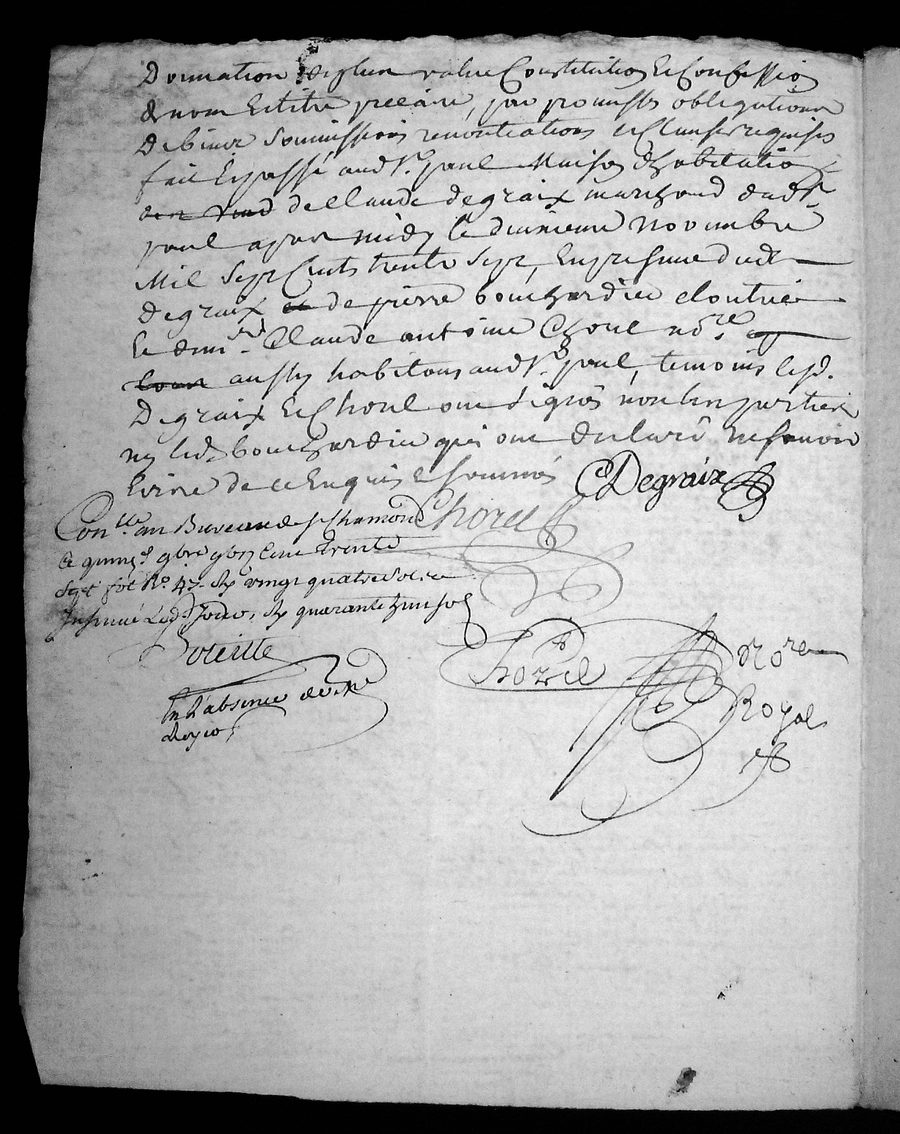 Donnation de plus value Constitution et Confession
de nom et titre precaire, par promesses obligations
de biens soumissions renontiations et clauses requises
fait et passé aud st paul Maison d'habitation
de Claude degraix marchand dud st
paul apres midy le dixieme novembre
Mil Sept Cents trente Sept, En presence dudt
degraix de pierre bouchardier cloutrier
le dmr Claude antoine Chorel nore
aussy habitans aud st paul, temoins lesd.
Degraix et Chorel ont signés non les parties
ny led bouchardier qui ont declaré ne scavoir
Ecrire de ce Enquis et sommés CDegraix
Conlle au Bureau de St Chamond Chorel
le quinze 9bre 1737 mil sept cent trente
Sept fol Ro. 47. Rx vingt quatre sols
Insinué Led. Jour, Rx quarante huit sols
Chorel Nore
En L'absence de Mr Royal